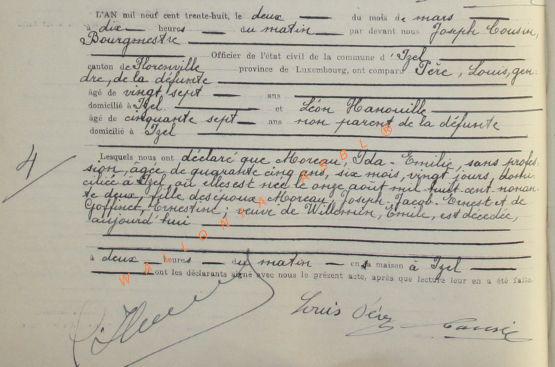 L'AN mil neuf cent trente-huit, le deux du mois de mars
à dix heures du matin par devant nous Joseph Cousin,
Bourgmestre
Officier de l'état civil de la commune d'Izel
canton de Florenville province de Luxembourg, ont comparu Père, Louis, gen
dre, de la défunte
âgé de vingt sept ans
domicilié à Izel et Léon Hanouille
âgé de cinquante sept ans non parent de la défunte
domicilié à Izel
4
Lesquels nous ont déclaré que Moreau, Ida-Emilie, sans profes
sion, agée de quarante cinq ans, six mois, vingt jours, domi
ciliée à Izel, où elle est née le onze août mil huit cent nonan
te deux, fille des époux Moreau, Joseph-Jacob-Ernest et de
Goffinet, Ernestine, veuve de Willemin, Emile, est décédée,
aujourd'hui
à deux heures du matin en sa maison à Izel
ont les déclarants signé avec nous le présent acte, après que lecture leur en a été faite
Louis Père
WALLONIA ASBL ©